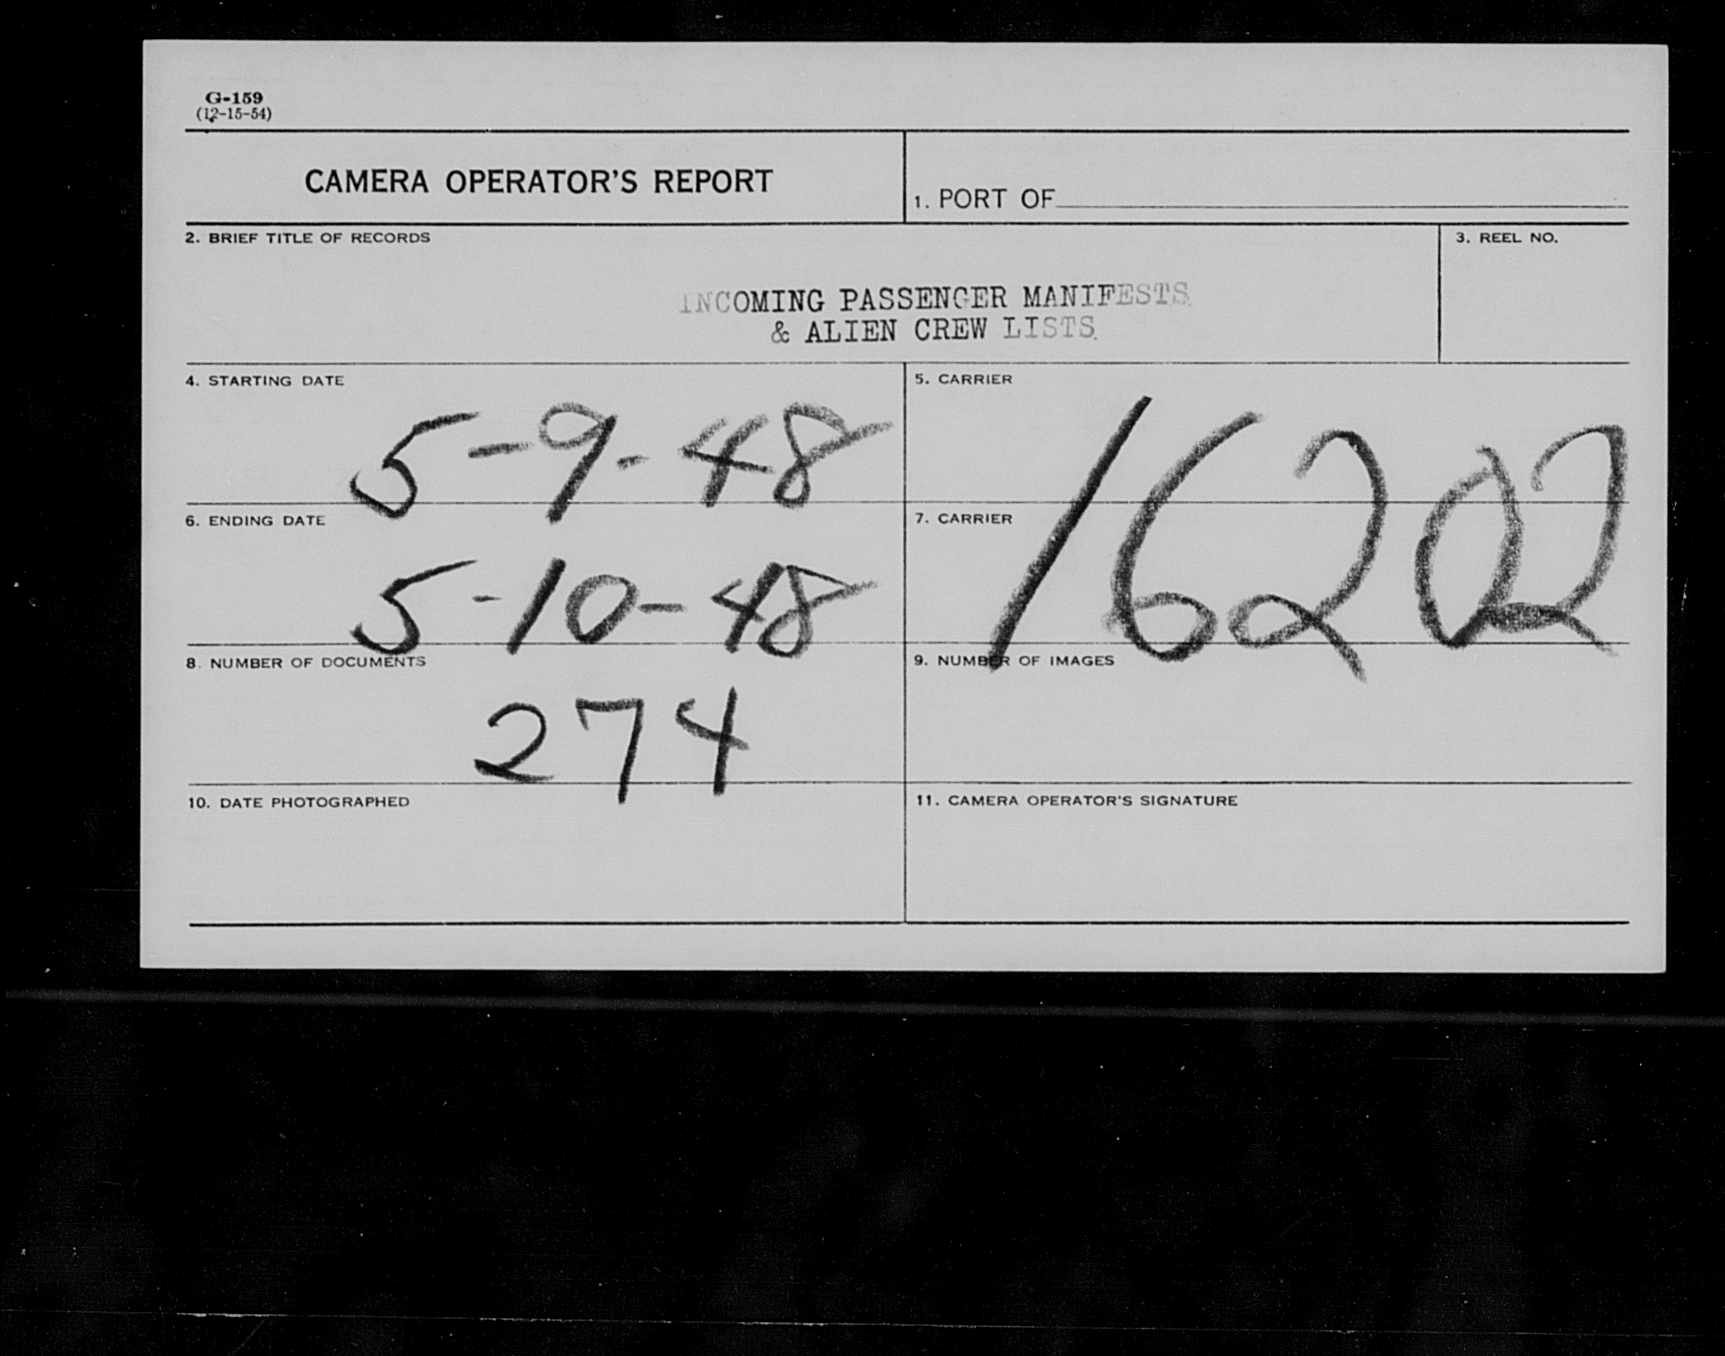 G-159
(12-15-54)
CAMERA OPERATOR'S REPORT
1. PORT OF
2. BRIEF TITLE OF RECORDS
3. REEL NO.
INCOMING PASSENGER MANIFESTS
& ALIEN CREW LISTS.
4. STARTING DATE
5-9-48
5. CARRIER
16202
6. ENDING DATE
5-10-48
7. CARRIER
8. NUMBER OF DOCUMENTS
274
9. NUMBER OF IMAGES
10. DATE PHOTOGRAPHED
11. CAMERA OPERATOR'S SIGNATURE